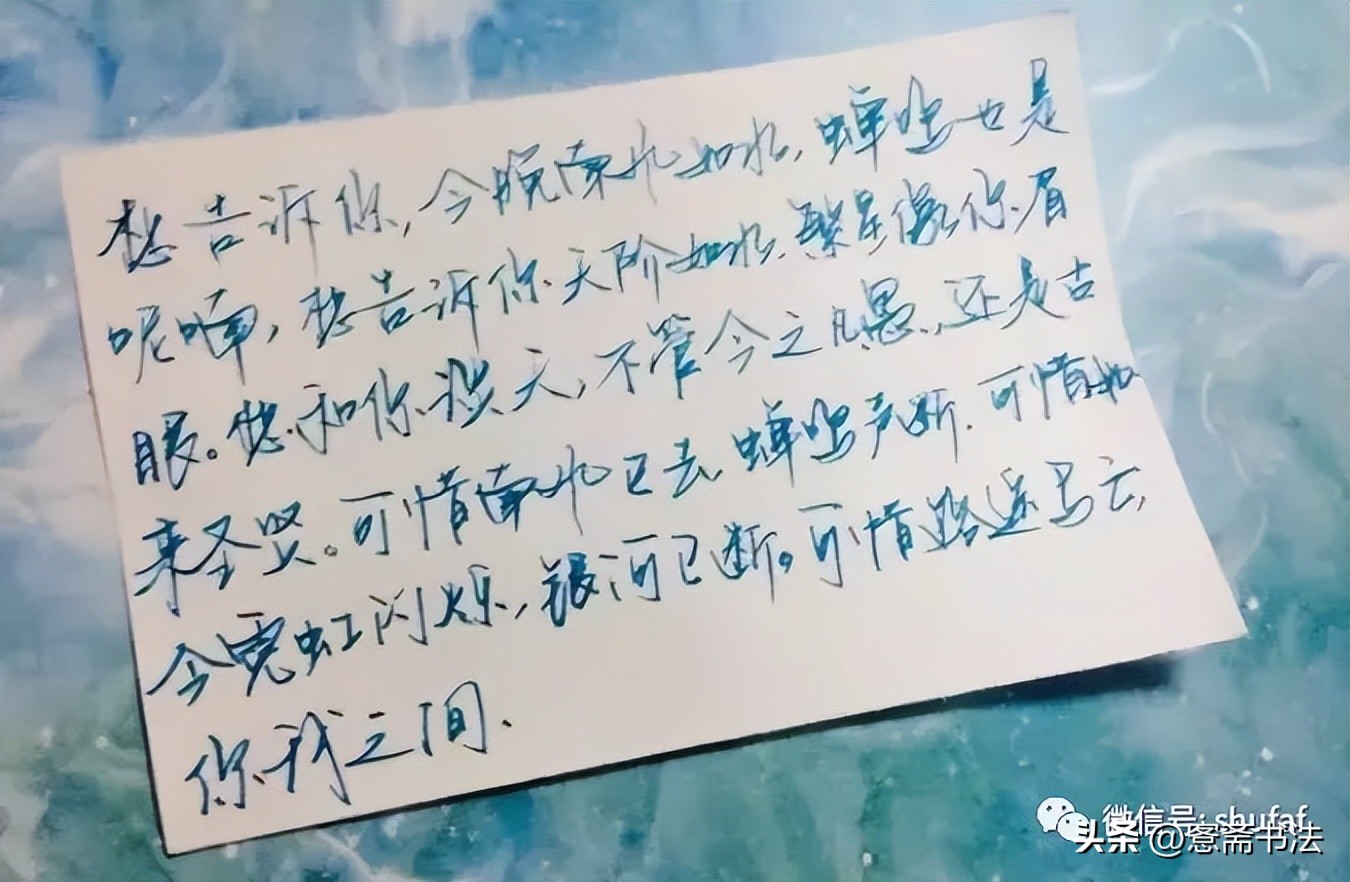 想告诉你,今晚南风如水,蝉鸣也是
呢喃,想告诉你天阶如水、繁星像你眉
眼。想和你谈天,不管今之凡愚,还是古
来圣贤。可惜南风已去、蝉鸣声断.可惜如
今霓虹闪烁,银河已断。可惜路遥马亡,
你我之间、
微信号: shufaf
头条 @窓斋书法